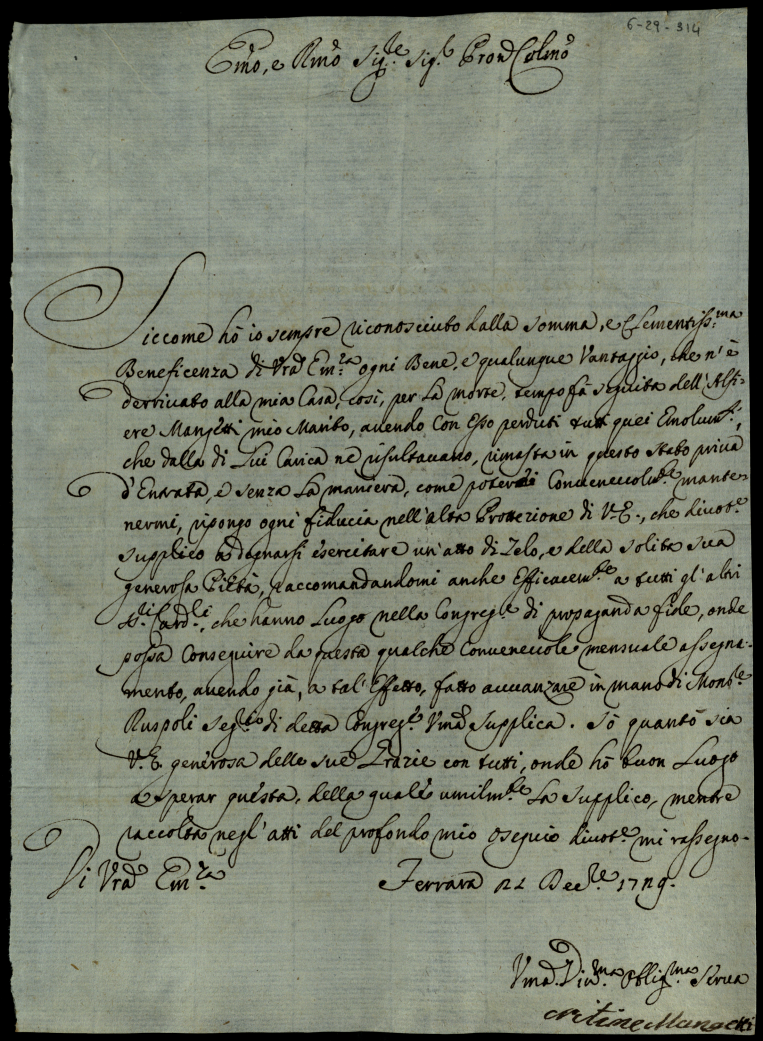 6-29-314
Emo, e Rmo Sigre Sigr Pron Colmo
Siccome hò io sempre riconosciuto dalla somma, e Clementissma
Beneficenza di Vrã Emza ogni Bene, e qualunque Vantaggio, che n'è
derrivato alla mia Casa, così, per la morte, tempo fà seguita dell'Alfi-
ere Mangetti mio Marito, avendo con Esso perduti tutti quei Emolumti,
che dalla di Lui Carica ne risultavano, rimasta in questo stato priva
d'Entrata, e senza la maniera, come poter Convenevolmte mante-
nermi, ripongo ogni fiducia nell'alta Protezione di V.E., che divote
supplico a degnarsi esercitare un'atto di Zelo, e della solita sua
generosa Pietà, raccomandandomi anche Efficacemte a tutti gl'altri
Sri Cardli, che hanno Luogo nella Congrege di propaganda fide, onde
possa Conseguire da questa qualche Convenevole mensuale assegna-
mento, avendo già, a tal'Effetto, fatto avvanzare in mano di Monsre
Ruspoli Segro di detta Congrege Vmã Supplica. Sò quanto sia
V.E. generosa delle sue Grazie con tutti, onde hò buon Luogo
a sperar questa, della quale umilmte La supplico, mentre
raccolta negl'atti del profondo mio ossequio divote mi rassegno.
Di Vrã Emza Ferrara 21 Decre 1729.
Vmã Divma Obligma Serva
Mangetti